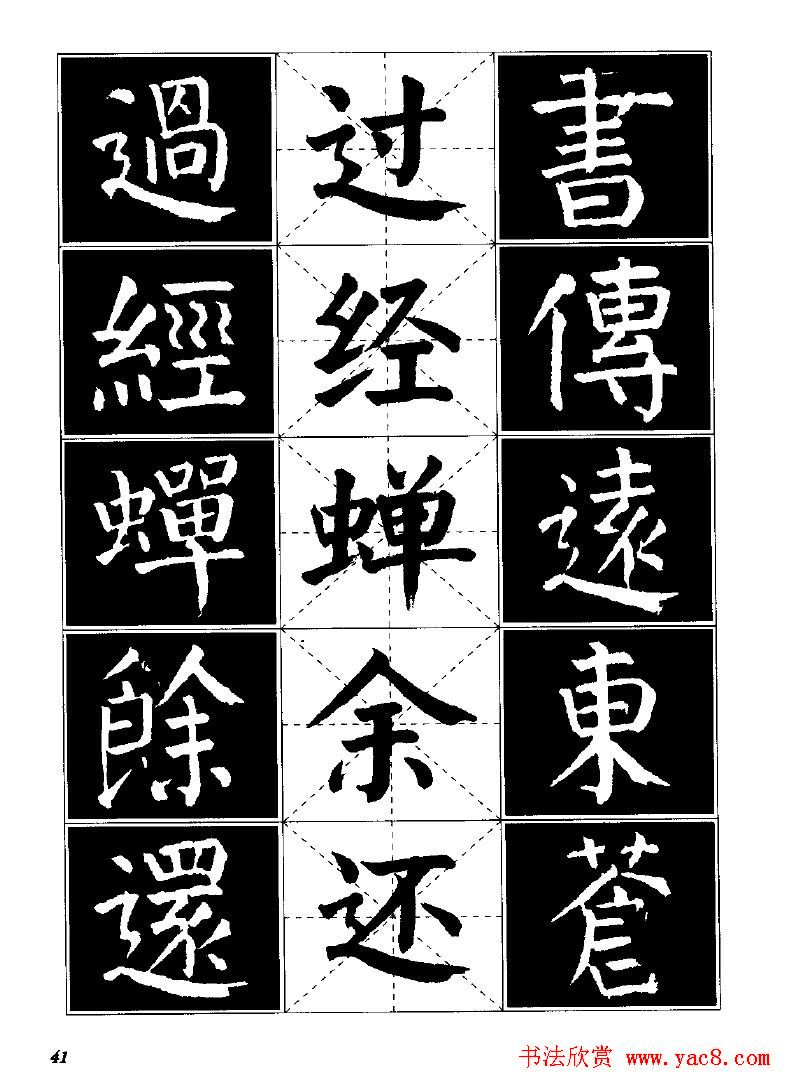 過 过 書
經 经 傳
蟬 蝉 遠
餘 余 東
還 还 蒼
41 书法欣赏 www.yac8.com